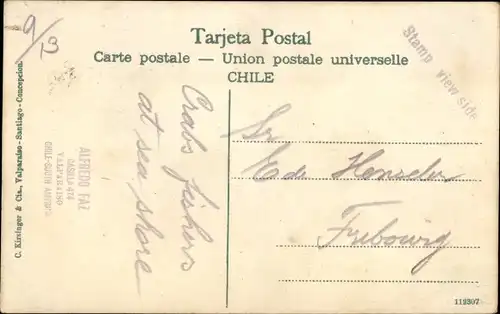 9/13
Tarjeta Postal
Carte postale — Union postale universelle
CHILE
Stamp view side
C. Kirsinger & Cia., Valparaiso - Santiago - Concepcion.
ALFREDO PAZ
CASILLA
VALPARAISO
CHILE-SOUTH AMERICA
Crabs fishers
at sea shore
Sr
E de Henseler
Fribourg
112307